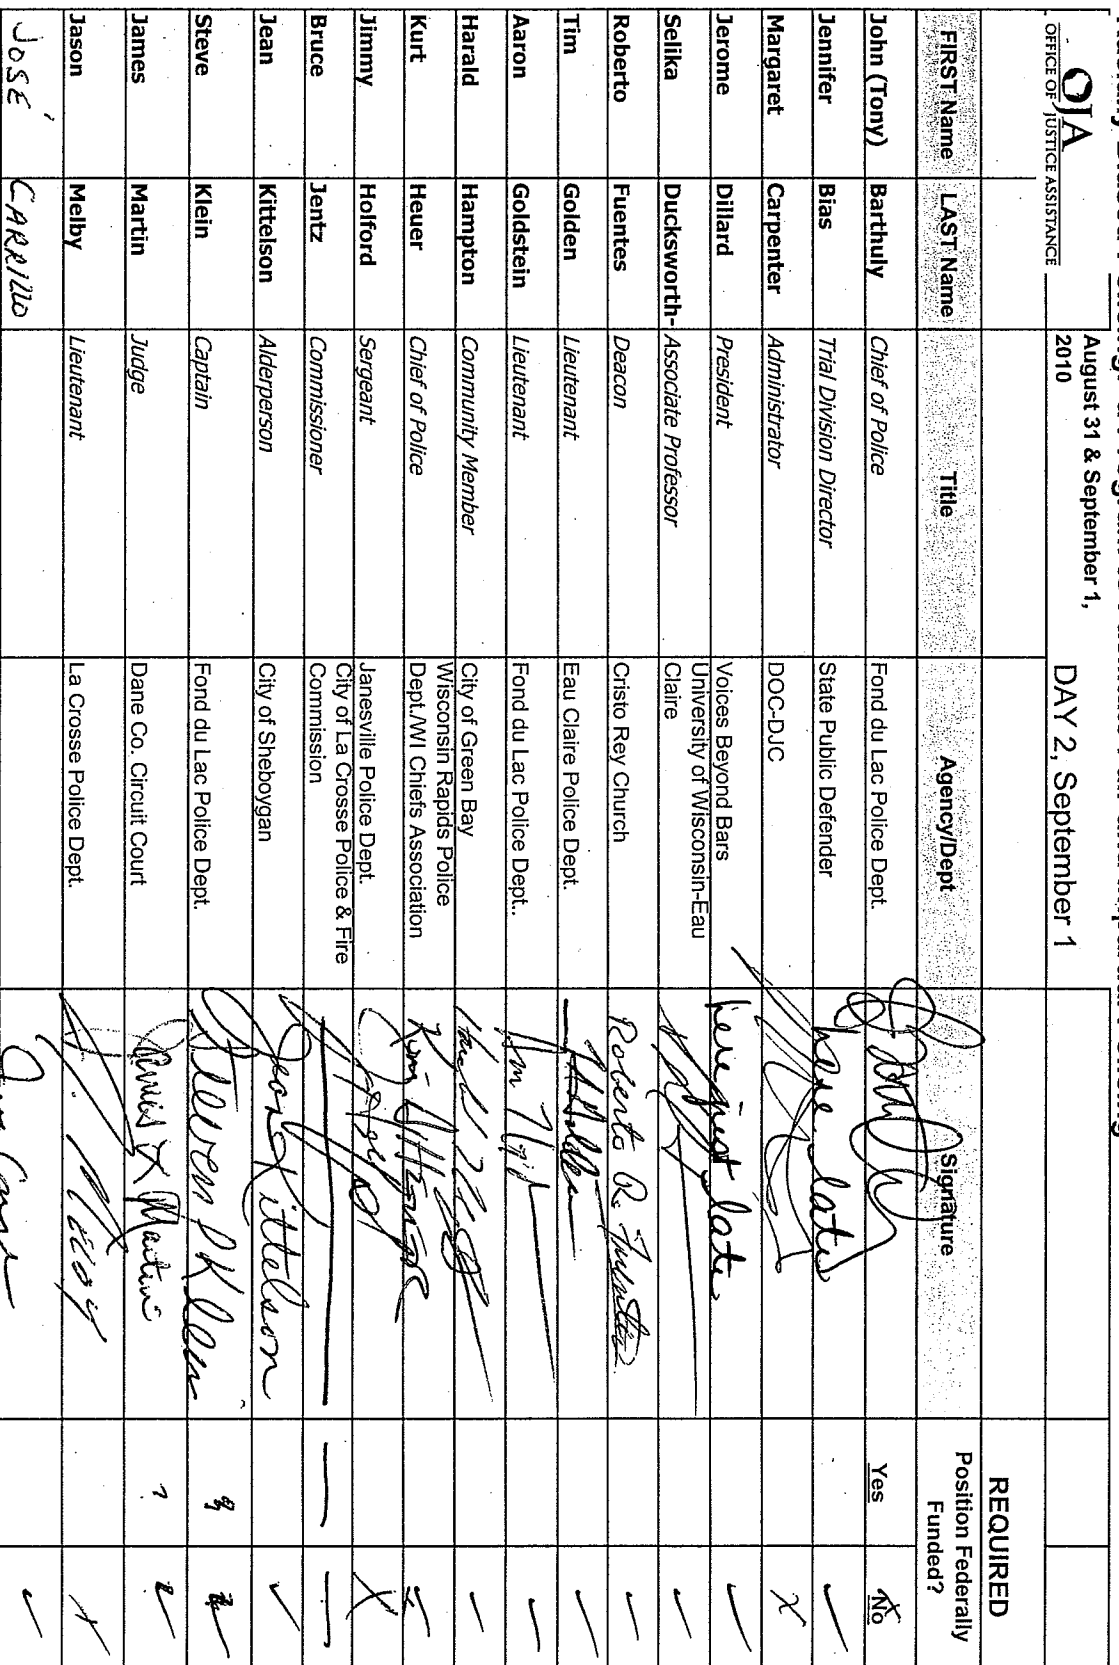 OJA
OFFICE OF JUSTICE ASSISTANCE
August 31 & September 1,
2010
DAY 2, September 1
REQUIRED
FIRST Name LAST Name Title Agency/Dept Signature Position Federally
Funded?
John (Tony) Barthuly Chief of Police Fond du Lac Police Dept. Yes No
Jennifer Bias Trial Division Director State Public Defender here late
Margaret Carpenter Administrator DOC-DJC
Jerome Dillard President Voices Beyond Bars here just late
Selika Ducksworth- Associate Professor University of Wisconsin-Eau
Claire
Roberto Fuentes Deacon Cristo Rey Church Roberto R. Fuentes
Tim Golden Lieutenant Eau Claire Police Dept.
Aaron Goldstein Lieutenant Fond du Lac Police Dept..
Harald Hampton Community Member City of Green Bay
Kurt Heuer Chief of Police Wisconsin Rapids Police
Dept./WI Chiefs Association
Jimmy Holford Sergeant Janesville Police Dept.
Bruce Jentz Commissioner City of La Crosse Police & Fire
Commission
Jean Kittelson Alderperson City of Sheboygan Jean Kittelson
Steve Klein Captain Fond du Lac Police Dept. Steven P Klein
James Martin Judge Dane Co. Circuit Court Martin ?
Jason Melby Lieutenant La Crosse Police Dept.
José CARRILLO